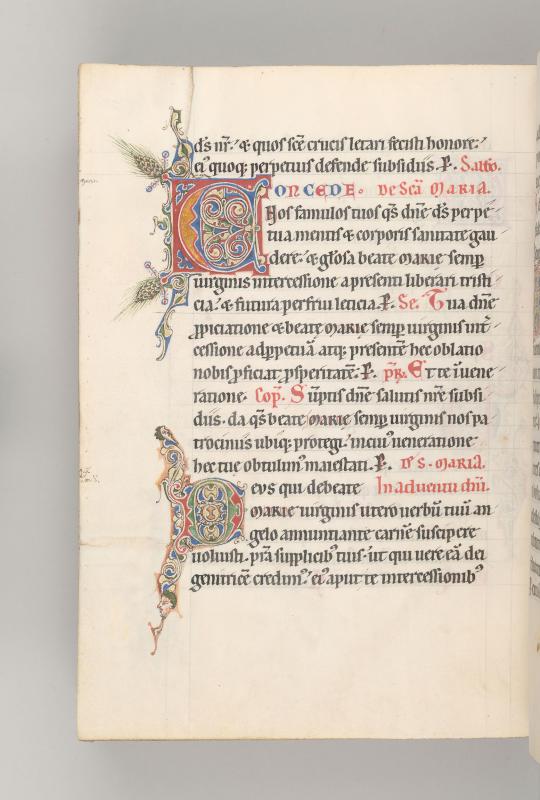 ds nr̄. & quos scē crucis letari fecisti honore.
ei' quoq; perpetuis defende subsidiis. P.
CONCEDE. De Scā MARIA.
Nos famulos tuos qs̄ dnē ds̄ perpe
tua mentis & corporis sanitate gau
dere. & glōsa beate marie semp
uirginis intercessione a presenti liberari tristi
cia. & futura perfrui leticia. P. Se. Tua dnē
ppiciatione & beate marie semp uirginis int̄
cessione ad ppetuā atq; presentē hec oblatio
nobis pficiat psperitatē. P. Et te in uene
ratione. Cop. Sūptis dnē salutis nrē subsi
diis. da qs̄ beate marie semp uirginis nos pa
trociniis ubiq; protegi. in cui' ueneratione
hec tue obtulim' maiestati. P. D S. MARIA.
Deus qui de beate In aduentu dni.
marie uirginis utero uerbū tuū an
gelo annuntiante carnē suscipere
uoluisti. prā supplicib' tuis. ut qui uere eā dei
genitricē credim'. ei' aput te intercessionib'